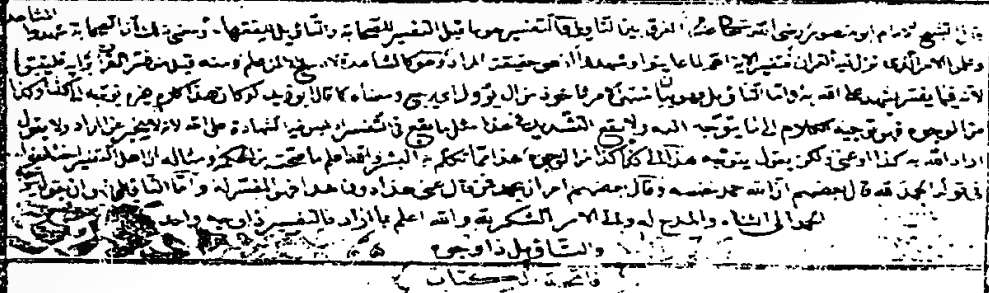 المشاهد
قال الشيخ الإمام أبو منصور رضي الله تعالى عنه الفرق بين التأويل والتفسير هو ما قيل التفسير للصحابة والتأويل للفقهاء ومعنى ذلك أن الصحابة شهدوا
وعلموا الأمر الذي نزل فيه القرآن فتفسير الآية أهم لما عاينوا وشهدوا إذ هو حقيقة المراد وهو كالمشاهدة لا إلا لمن علم ومنه قيل من فسر القرآن برأيه فليتبوأ
لأنه فيما يفسر يشهد على الله به وأما التأويل فهو بيان منتهى الأمر مأخوذ من آل يؤول أي يرجع ومعناه كما قال أبو زيد لو كان هذا كلام غيره توجه إلى كذا وكذا
من الوجوه فهو توجيه الكلام إلى ما يتوجه إليه ولا يقع التشديد في هذا مثل ما يقع في التفسير إذ ليس فيه الشهادة على الله لأنه لا يخبر عن المراد ولا يقول
أراد الله به كذا أو عنى ولكن يقول يتوجه هذا إلى كذا وكذا من الوجوه هذا مما تكلم به البشر والله أعلم بما صحته من الحكمة ومثاله أن أهل التفسير اختلفوا
في قوله الحمد لله قال بعضهم إن الله حمد نفسه وقال بعضهم أمر أن يحمد فمن قال عنى هذا دون هذا فهو المفسر له وأما التأويل فهو أن يقول
الحمد إلى الثناء والمدح له وإلى الأمر بالشكر له والله أعلم بما أراد فالتفسير ذو وجه واحد
والتأويل ذو وجوه
فاتحة الكتاب